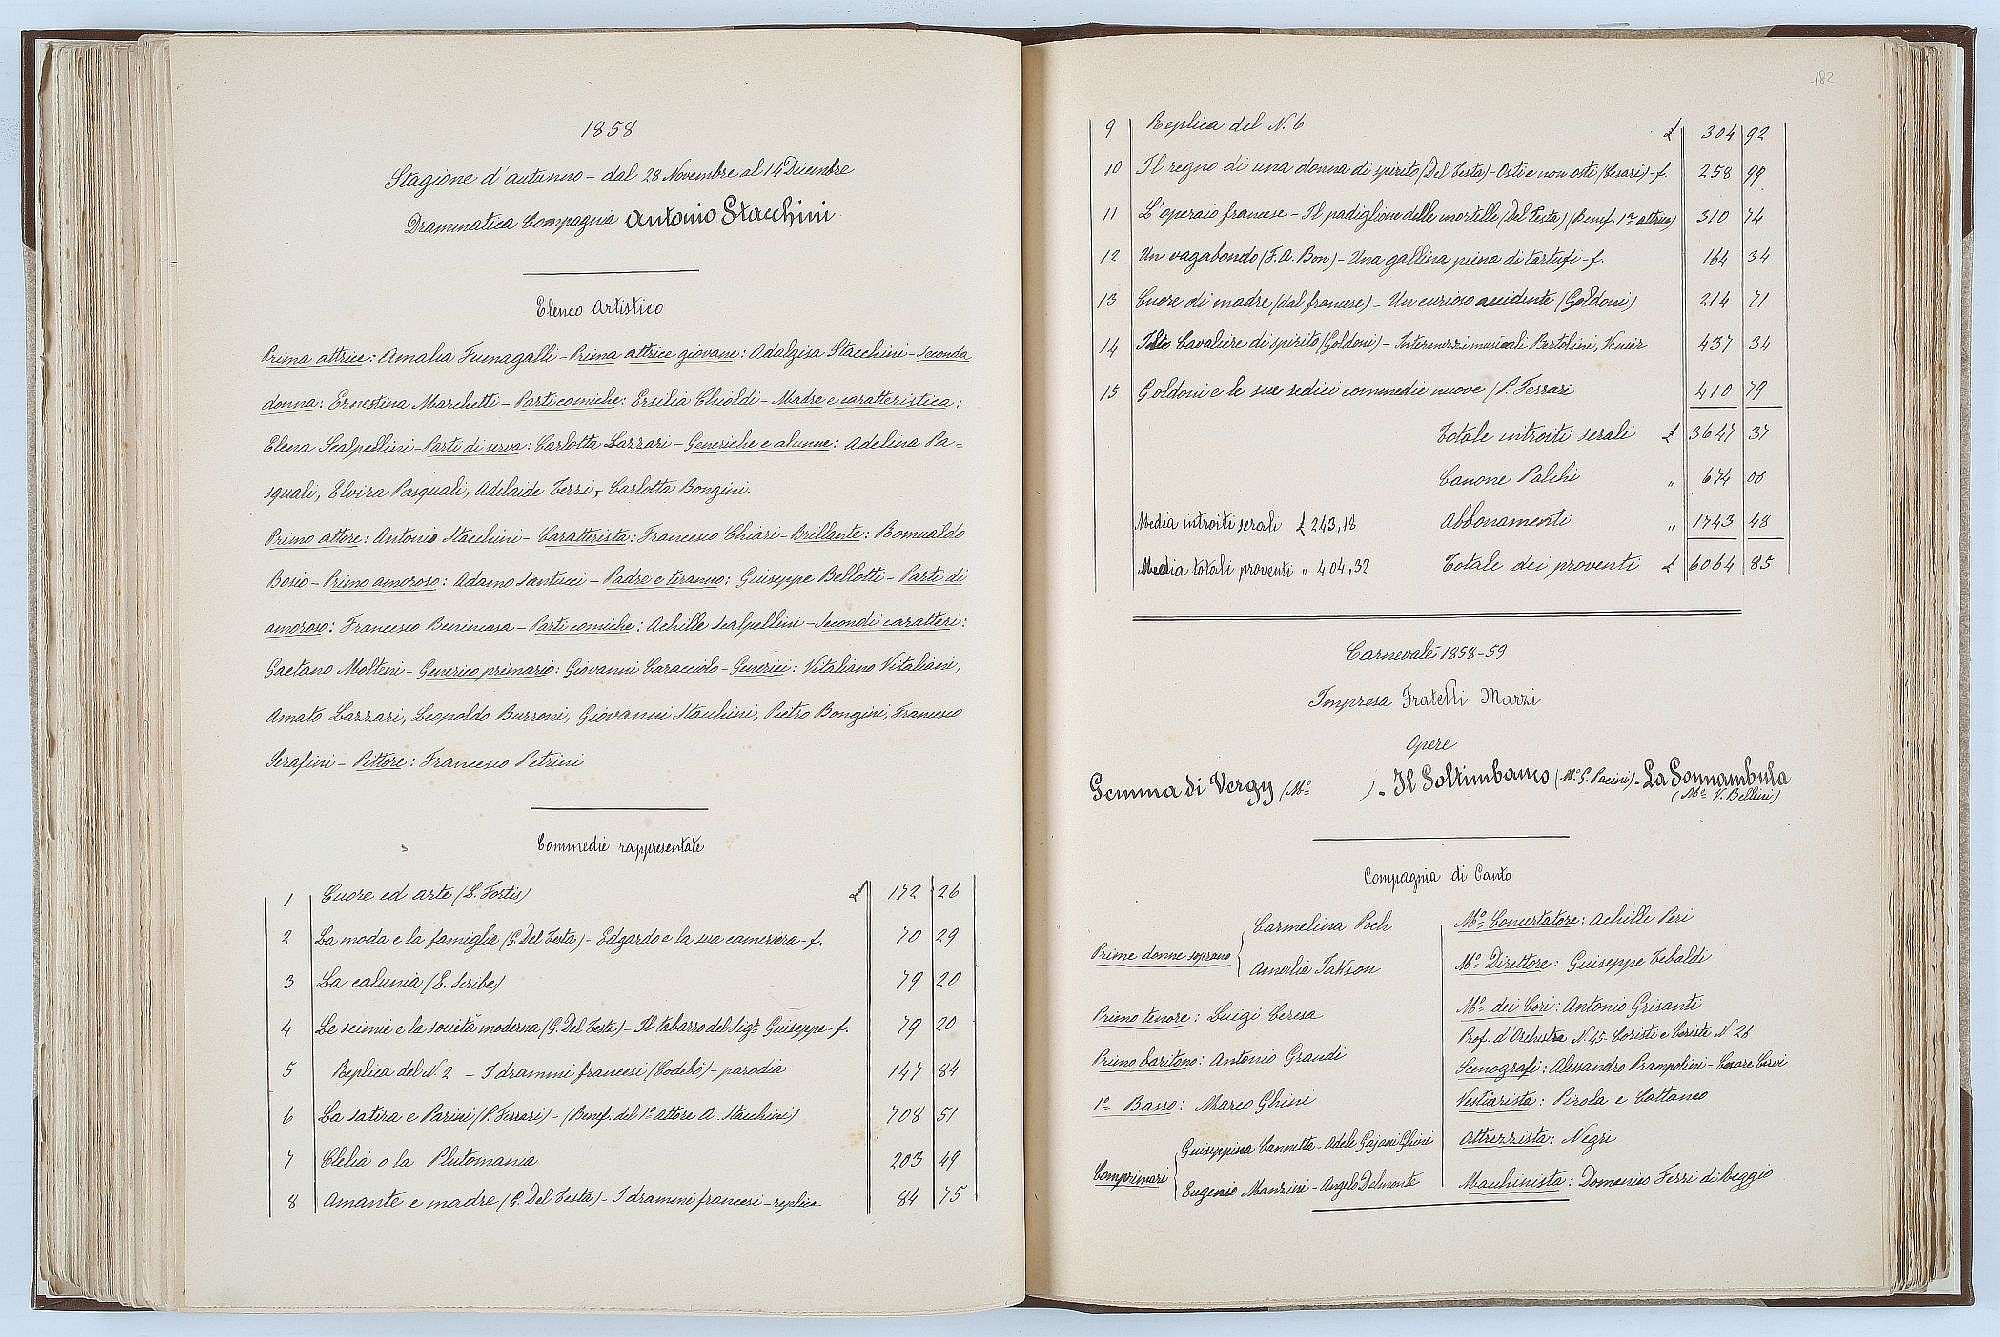 1858
Stagione d'autunno - dal 28 Novembre al 14 Dicembre
Drammatica Compagnia Antonio Stacchini
Elenco Artistico
Prima attrice: Amalia Fumagalli - Prima attrice giovane: Adalgisa Stacchini - Seconda
donna: Ernestina Marchetti - Parti comiche: Ersilia Chioldi - Madre e caratteristica:
Elena Scalpellini - Parti di serva: Carlotta Lazzari - Generiche e alunne: Adelina Pa=
squali, Elvira Pasquali, Adelaide Terri, Carlotta Bongini.
Primo attore: Antonio Stacchini - Caratterista: Francesco Chiari - Brillante: Romualdo
Bosio - Primo amoroso: Adamo Santucci - Padre e tiranno: Giuseppe Bellotti - Parti di
amoroso: Francesco Benincasa - Parti comiche: Achille Scalpellini - Secondi caratteri:
Gaetano Molteni - Generico primario: Giovanni Caracciolo - Generici: Vitaliano Vitaliani,
Amato Lazzari, Leopoldo Buzzoni, Giovanni Stacchini, Pietro Bongini, Francesco
Serafini - Pittore: Francesco Petrini
Commedie rappresentate
1 Cuore ed arte (L. Fortis) £ 172 26
2 La moda e la famiglia (G. Del Testa) - Edgardo e la sua cameriera - f. 70 29
3 La calunia (S. Scribe) 79 20
4 Le scimie e la società moderna (G. Del Testa) - Il tabarro del sigr Giuseppe - f. 79 20
5 Replica del N. 2 - I drammi francesi (Codebò) - parodia 147 84
6 La satira e Parini (P. Ferrari) - (Benef. del 1° attore A. Stacchini) 708 51
7 Clelia o la Plutomania 203 49
8 Amante e madre (G. Del Testa) - I drammi francesi - replica 84 75
182
9 Replica del N. 6 £ 304 92
10 Il regno di una donna di spirito (Del Testa) - Osti e non osti (Cesari) - f. 258 99
11 L'operaio francese - Il padiglione delle mortelle (Del Testa) (Benef. 1a attrice) 310 74
12 Un vagabondo (F. A. Bon) - Una gallina piena di tartufi - f. 164 34
13 Cuore di madre (dal francese) - Un curioso accidente (Goldoni) 214 71
14 Cavaliere di spirito (Goldoni) - Intermezzi musicali Bertolini, Venier 437 34
15 Goldoni e le sue sedici commedie nuove (P. Ferrari 410 79
Totale introiti serali £ 3647 37
Canone Palchi " 674 00
Media introiti serali £ 243,18 Abbonamenti " 1743 48
Media totali proventi " 404,32 Totale dei proventi £ 6064 85
Carnevale 1858-59
Impresa Fratelli Marzi
Opere
Gemma di Vergy (Mo ) - Il Soltimbanco (Mo G. Pacini) - La Sonnambula
(Mo V. Bellini)
Compagnia di Canto
Prime donne soprano
Carmelina Poch
Amalia Jakson
Primo tenore: Luigi Ceresa
Primo baritono: Antonio Grandi
1° Basso: Marco Ghini
Comprimari
Giuseppina Cannetta - Adele Pajani Ghini
Eugenio Manzini - Angelo Delmonte
Mo Concertatore: Achille Peri
Mo Direttore: Giuseppe Tebaldi
Mo dei Cori: Antonio Grisanti
Prof. d'Orchestra N. 45 - Coristi e Coriste N. 26
Scenografi: Alessandro Prampolini - Cesare Cervi
Vestiarista: Pirola e Cattaneo
Attrezzista: Negri
Macchinista: Domenico Ferri di Reggio